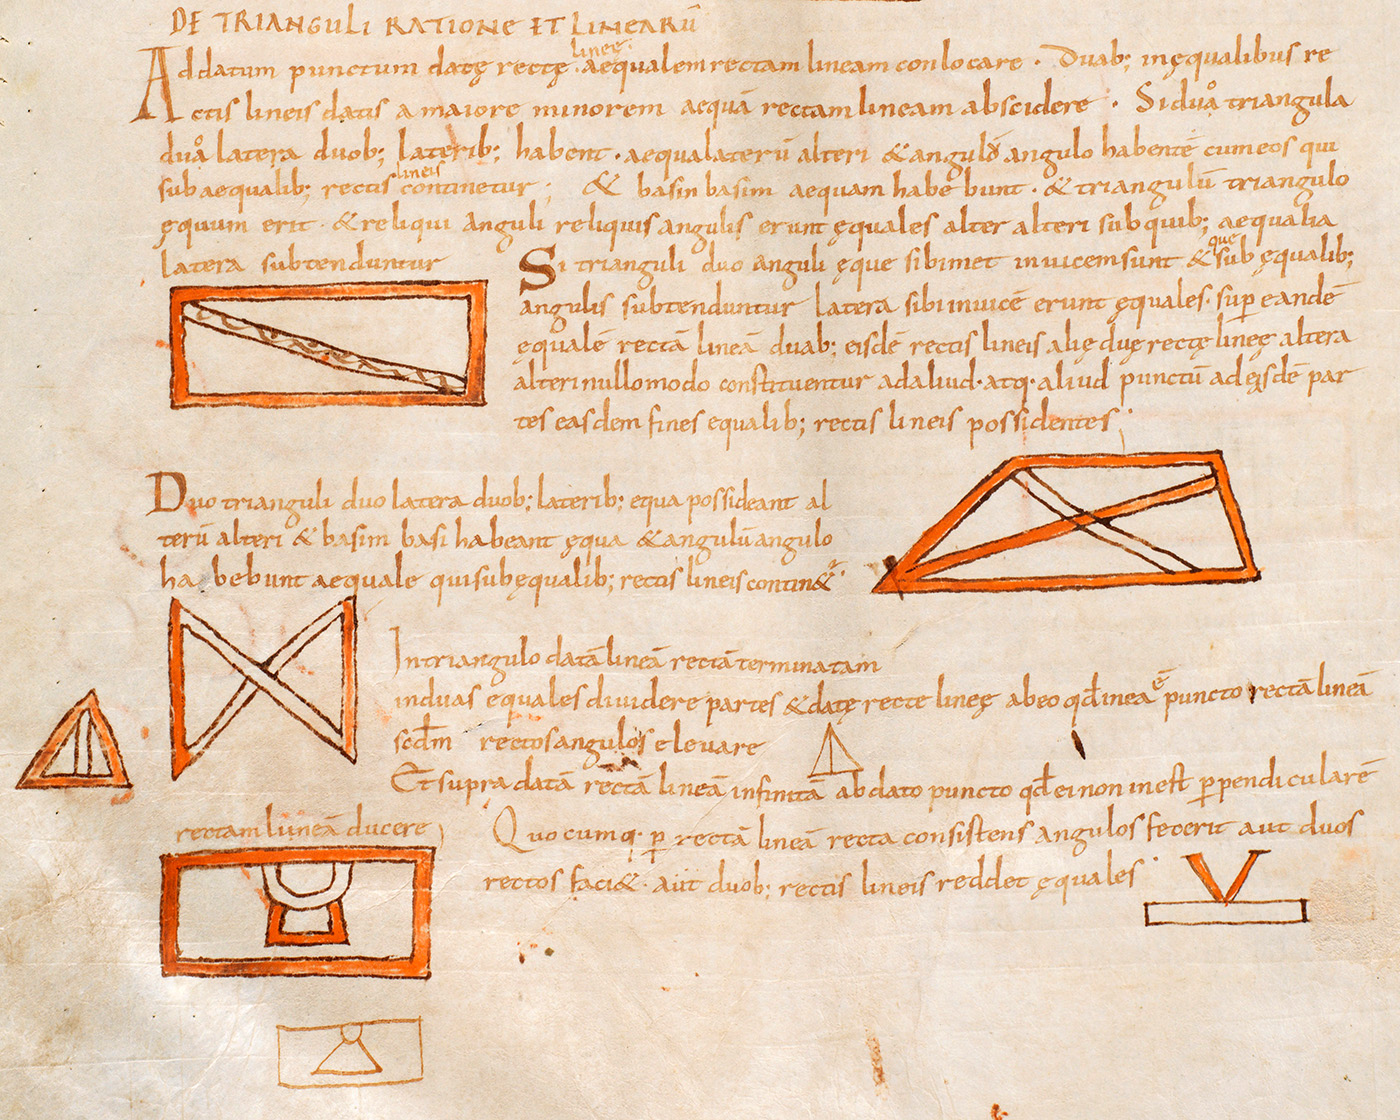 DE TRIANGULI RATIONE ET LINEARŪ
lineę
Ad datum punctum datę rectę aequalem rectam lineam conlocare · Duab; inęqualibus re
ctis lineis datis a maiore minorem aequā rectam lineam abscidere · Si duo triangula
duo latera duob; laterib; habent · aequalaterū alteri & angulū angulo habentē cum eos qui
lineis
sub aequalib; rectis continetur ; & basin basim aequam habe bunt · & triangulū triangulo
ęquum erit · & reliqui anguli reliquis angulis erunt ęquales alter alteri sub quib; aequalia
latera subtenduntur
Si trianguli duo anguli ęque sibimet invicem sunt & que sub ęqualib;
angulis subtenduntur latera sibi inuicē erunt ęquales · sup eandē
ęqualē rectā lineā duab; eisdē rectis lineis alię duę rectę lineę altera
alteri nullo modo constituentur ad aliud · atq · aliud punctū ad eisdē par
tes easdem fines equalib; rectis lineis possidentes
Duo trianguli duo latera duob; laterib; equa possideant al
terū alteri & basim basi habeant ęqua & angulū angulo
ha bebunt aequale qui sub ęqualib; rectis lineis contin&
In triangulo datā lineā rectā terminatam
in duas equales dividere partes & datę recte lineę ab eo qđ in ea ē puncto rectā lineā
scđm rectos angulos elevare
Et supra datā rectā lineā infinitā ab dato puncto qđ ei non inest ppendicularē
rectam lineā ducere
Quocumq · p rectā lineā recta consistens angulos fecerit aut duos
rectos faci& · aut duob; rectis lineis reddet ęquales